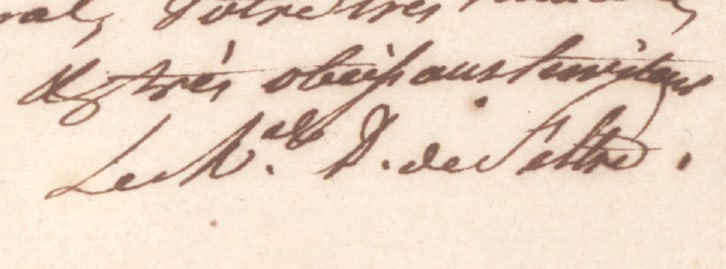 ral, Votre très
& très obéissant serviteur
Le M.al D. de Feltre.